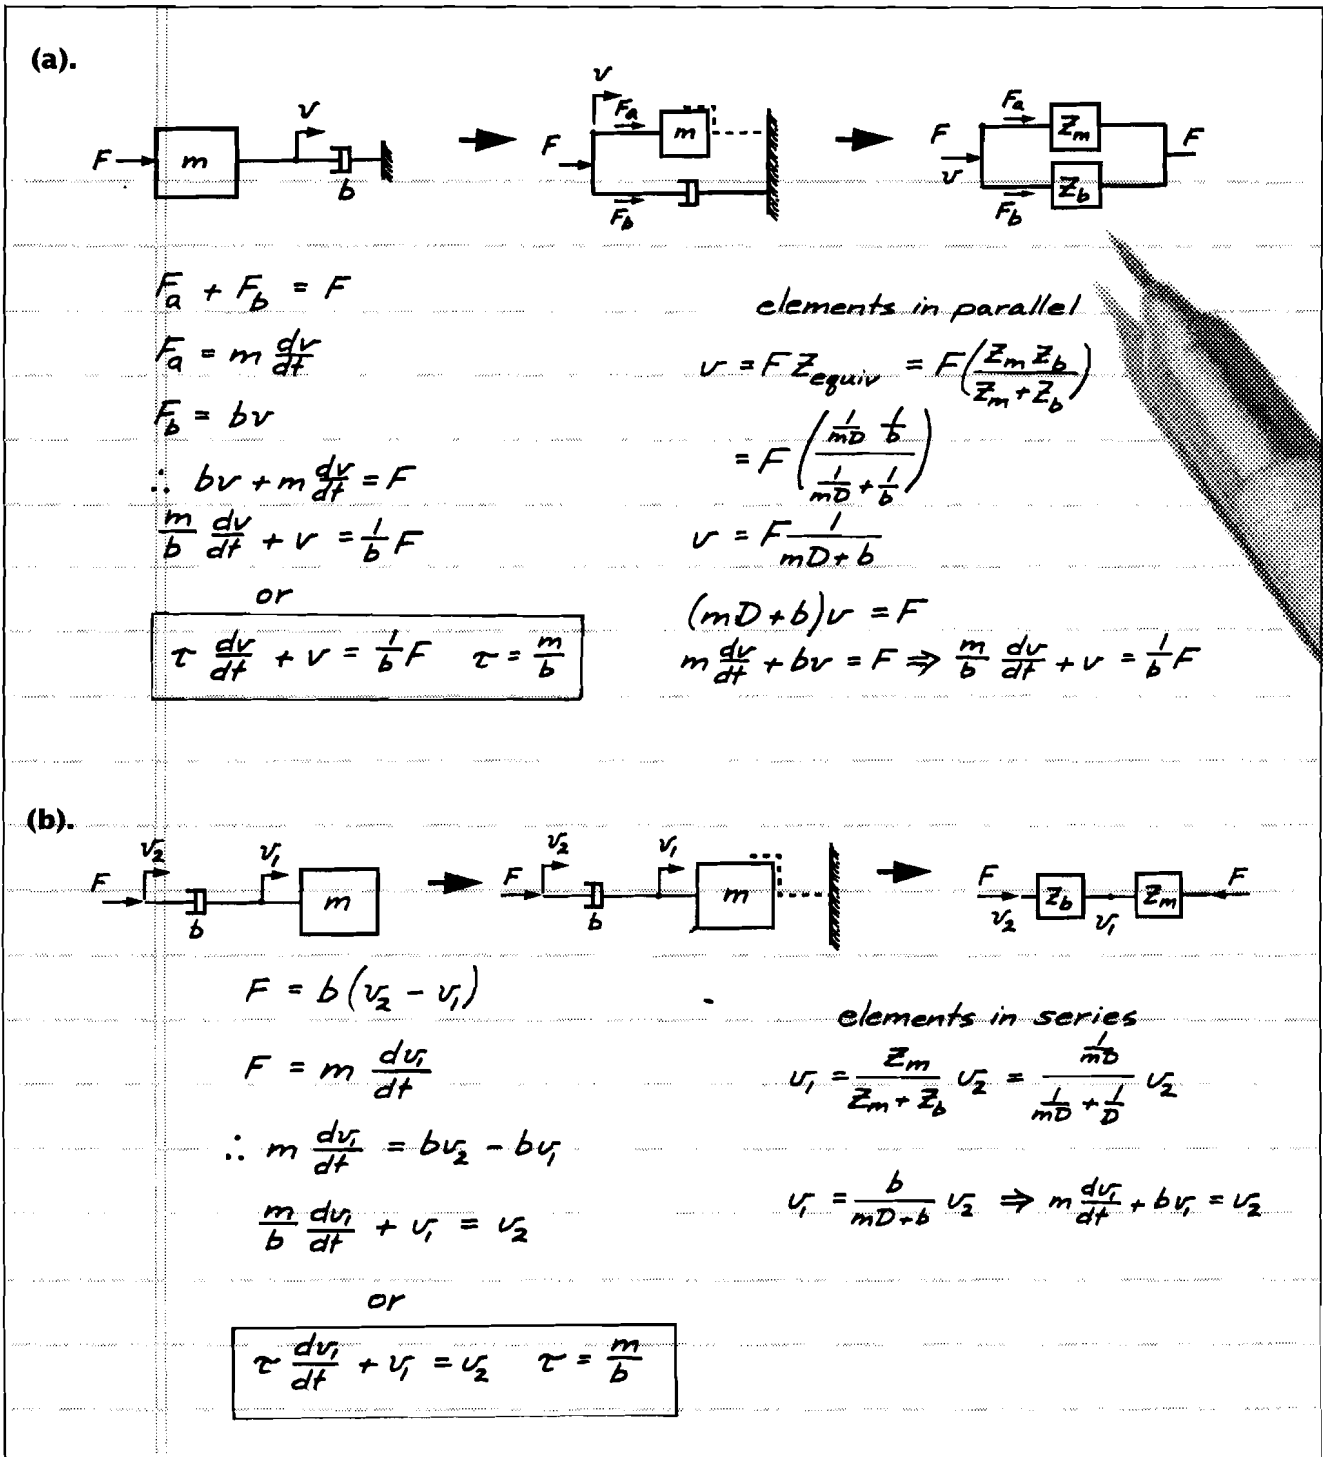 (a).
F m v b
v F F_a m F_b
F v F_a Z_m Z_b F_b F
F_a + F_b = F
F_a = m dv/dt
F_b = bv
∴ bv + m dv/dt = F
m/b dv/dt + v = 1/b F
or
τ dv/dt + v = 1/b F τ = m/b
elements in parallel
v = F Z_equiv = F(Z_m Z_b / (Z_m + Z_b))
= F((1/mD 1/b) / (1/mD + 1/b))
v = F 1/(mD + b)
(mD + b)v = F
m dv/dt + bv = F ⇒ m/b dv/dt + v = 1/b F
(b).
F v_2 b v_1 m
F v_2 b v_1 m
F v_2 Z_b v_1 Z_m F
F = b(v_2 - v_1)
F = m dv_1/dt
∴ m dv_1/dt = bv_2 - bv_1
m/b dv_1/dt + v_1 = v_2
or
τ dv_1/dt + v_1 = v_2 τ = m/b
elements in series
v_1 = Z_m/(Z_m + Z_b) v_2 = (1/mD)/(1/mD + 1/D) v_2
v_1 = b/(mD + b) v_2 ⇒ m dv_1/dt + bv_1 = v_2